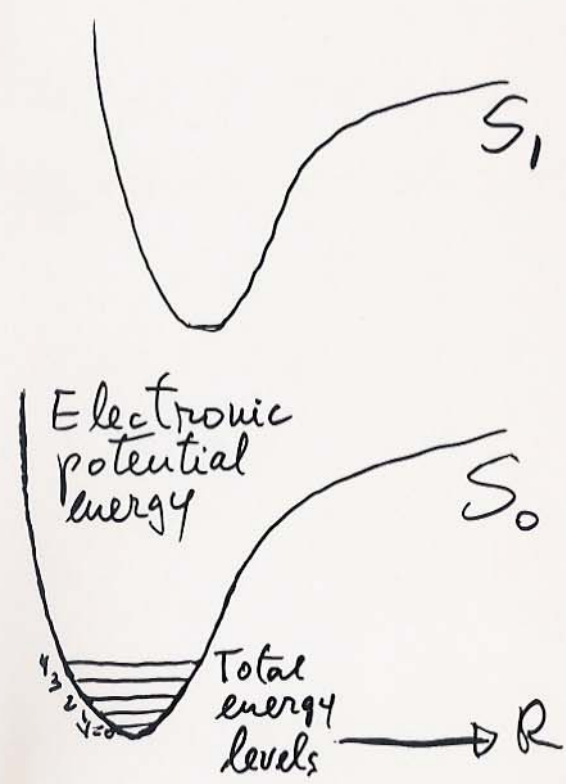 S₁
Electronic
potential
energy
S₀
4
3
2
1
v=0
Total
energy
levels
R